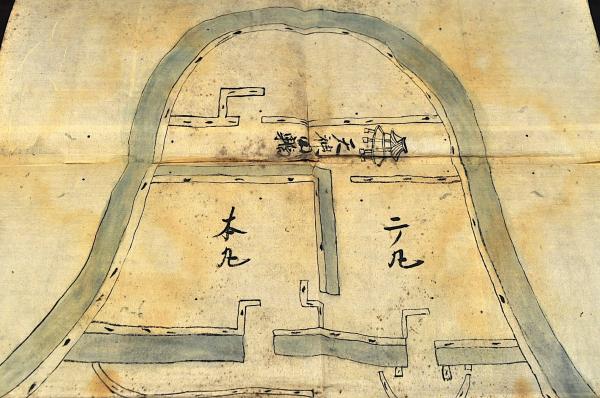 天神曲輪
二ノ丸
本丸